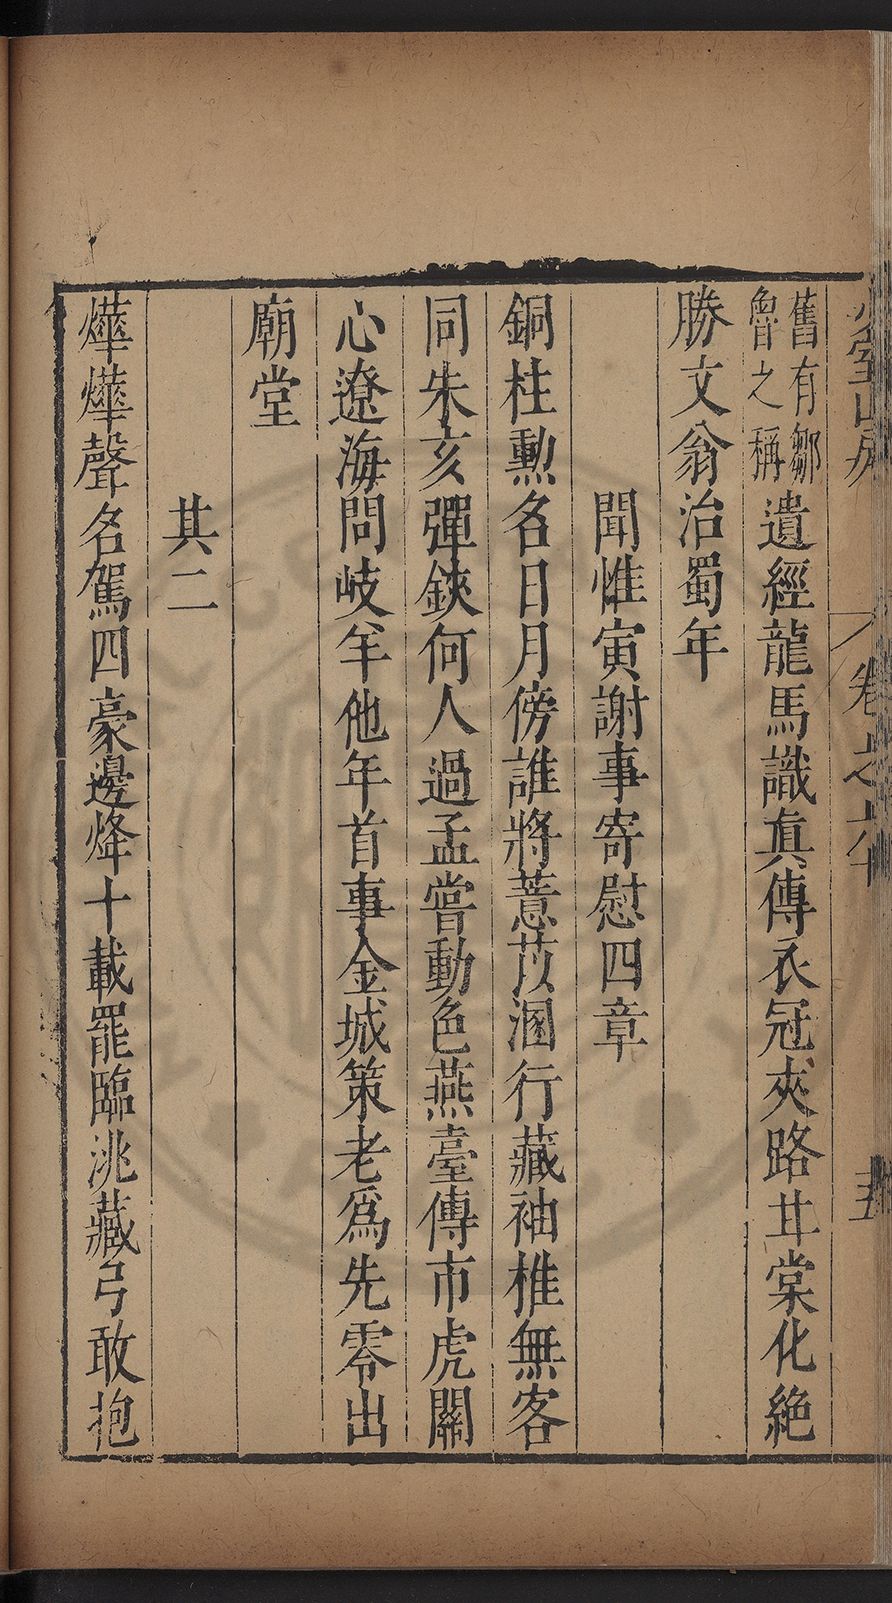 舊有鄒魯之稱遺經龍馬識真傳衣冠夾路甘棠化絶
勝文翁治蜀年
聞惟寅謝事寄慰四章
銅柱勲名日月傍誰將薏苡溷行藏袖椎無客
同朱亥彈鋏何人過孟嘗動色燕臺傳市虎關
心遼海問岐羊他年首事金城策老爲先零出
廟堂
其二
燁燁聲名駕四豪邊烽十載罷臨洮藏弓敢抱